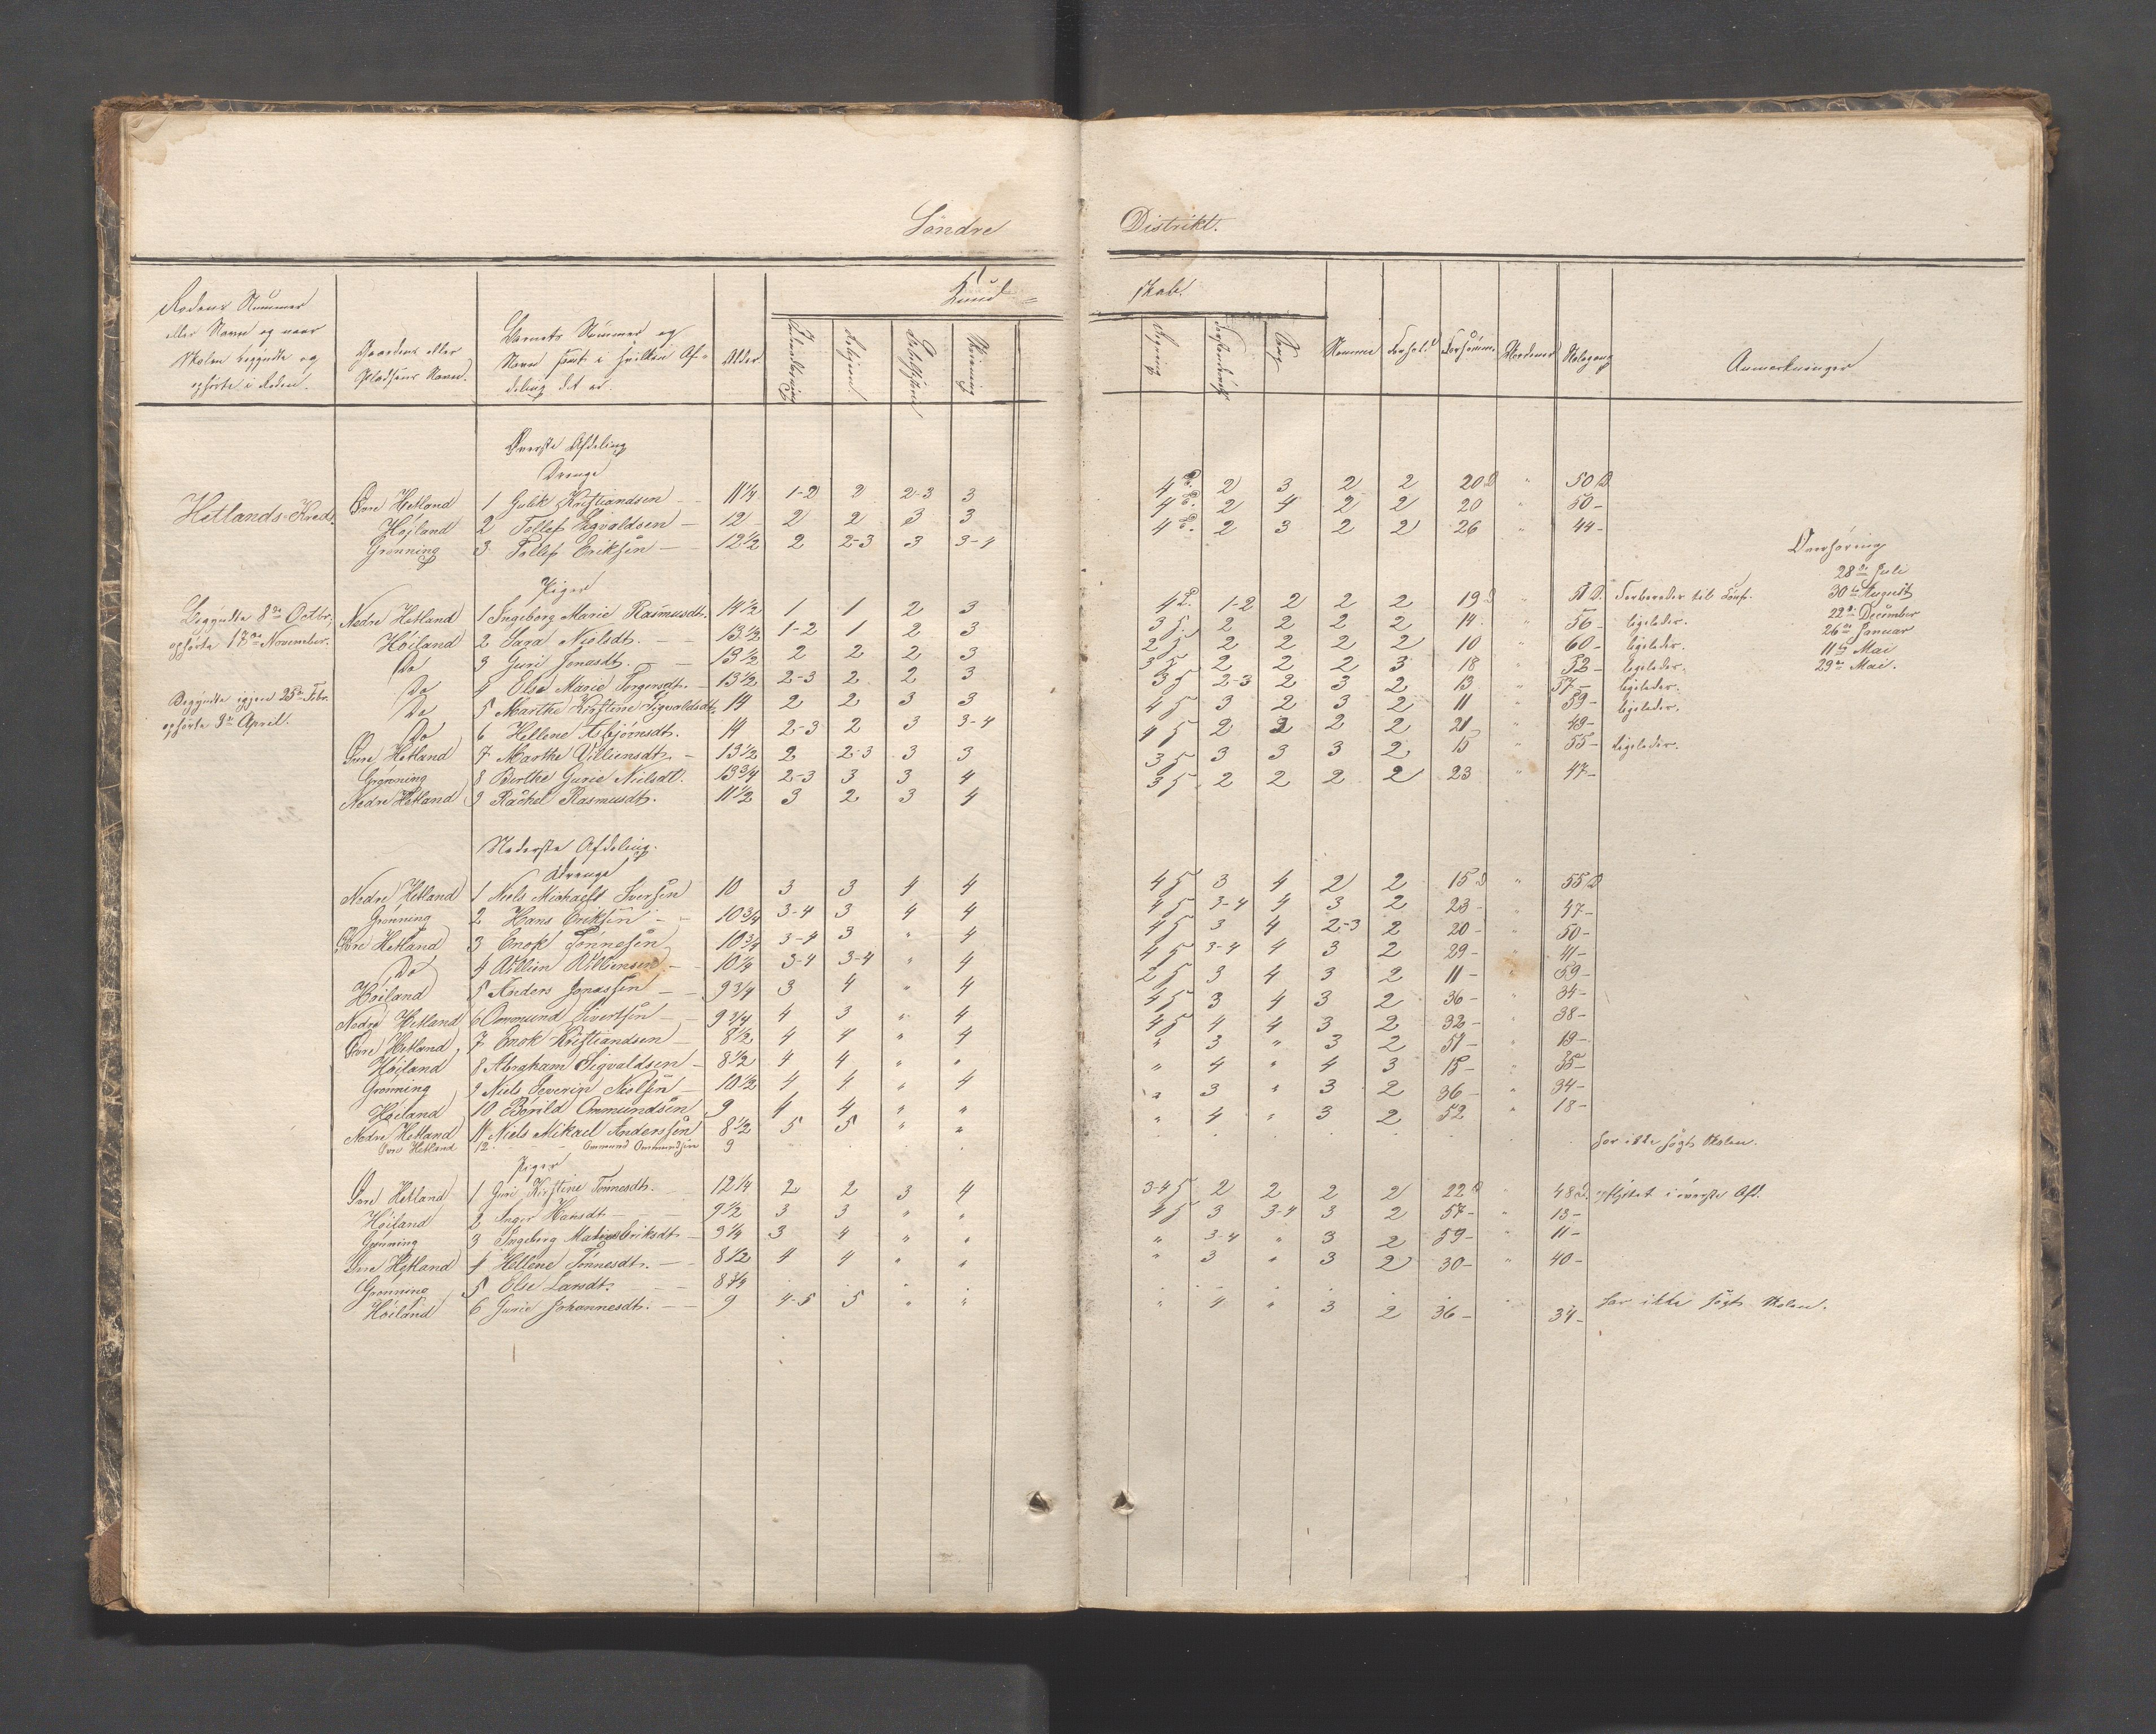 Söndre Distrikt.
Rodens Nummer eller Navn og naar Skolen begyndte og ophörte i Roden.
Gaardens eller Pladsens Navn.
Barnets Nummer og Navn samt i hvilken Afdeling det er.
Alder
Kundskab.
Religion
Skrivning
Regning
Sang
Nemme
Forhold
Forsömm.
Skolegang
Anmærkninger
Överste Afdeling
Drenge
Hetlands-Kreds. Övre Hetland 1 Gulik Kristiandsen 11 1/4 1-2 2 2-3 3 4 2 3 2 2 20 D " 50 D
Höjland 2 Tollef Sigvaldsen 12 2 2 3 3 4 2 4 2 2 20 " 50 -
Grönning 3 Tollef Eriksen 12 1/2 2 2-3 3 3-4 4 2 3 2 2 26 " 44 -
Overhöring
28de Juli
30te August
22de December
26de Januar
11te Mai
29de Mai.
Piger
Begyndte 8de Octbr, ophörte 17de November.
Begyndte igjen 25de Febr. ophörte 8de April.
Nedre Hetland 1 Ingeborg Marie Rasmusdt. 14 1/2 1 1 2 3 4 1-2 2 2 2 19 D " 51 D. Forbereder til Conf.
Höiland 2 Sara Nielsdt. 13 1/2 1-2 1 2 3 3 5 2 2 2 2 14 " 56 - ligeledes.
Do 3 Guri Jonasdt. 13 1/2 2 2 2 3 2 5 2 2 2 2 10 " 60 - ligeledes.
Do 4 Else Marie Torgersdt. 13 1/2 2-3 2 2 3 3 5 2 2 2 3 18 " 52 - ligeledes.
Do 5 Marthe Kirstine Sigvaldsdt. 14 2 2 3 3 3 5 2-3 2 3 2 13 " 57 - ligeledes.
Do 6 Hellene Asbjörnsdt. 14 2-3 2 3 3-4 4 5 3 2 3 2 11 " 59 - ligeledes.
Övre Hetland 7 Marthe Villiensdt. 13 1/2 2 2-3 3 3 4 5 2 2 2 2 21 " 49 -
Grönning 8 Berthe Gurie Nielsdt. 13 3/4 2-3 3 3 4 3 5 3 3 3 2 15 " 55 - ligeledes.
Nedre Hetland 9 Rachel Rasmusdt. 11 1/2 3 2 3 4 3 5 2 2 2 2 23 " 47 -
Nederste Afdeling.
Drenge
Nedre Hetland 1 Niels Michaels Iversen 10 3 3 4 4 4 5 3 4 2 2 15 D " 55 D
Grönning 2 Hans Eriksen 10 3/4 3-4 3 4 4 4 5 3-4 4 3 2 23 - " 47 -
Övre Hetland 3 Enok Tönnesen 10 3/4 3-4 3 " 4 4 5 3 4 2-3 2 20 - " 50 -
Do 4 Willien Williensen 10 1/4 3-4 3-4 " 4 4 5 3-4 4 3 2 29 - " 41 -
Höiland 5 Anders Jonassen 9 3/4 3 4 " 4 2 5 3 4 3 2 11 - " 59 -
Nedre Hetland 6 Ommund Sivertsen 9 3/4 4 3 " 4 4 5 3 4 3 2 36 - " 34 -
Övre Hetland 7 Enok Kristiandsen 8 1/2 4 4 " 4 4 5 4 4 3 2 32 - " 38 -
Höiland 8 Abraham Sigvaldsen 8 1/2 4 4 " " " 3 " 3 2 51 - " 19 -
Grönning 9 Niels Severin Nielsen 10 1/2 4 4 " 4 " 4 " 4 3 15 - " 35 -
Höiland 10 Börild Ommundsen 9 4 4 " " " 3 " 3 2 36 - " 34 -
Nedre Hetland 11 Niels Mikael Anderssen 8 1/2 5 5 " " " 4 " 3 2 52 " 18 -
Övre Hetland 12. Ommund Ommundsen 9 har ikke sögt Skolen.
Piger
Övre Hetland 1 Guri Kirstine Tönnesdt. 12 1/4 2 2 3 4 3-4 5 2 2 2 2 22 D " 48 D. opflyttet i överste Afd.
Höiland 2 Inger Hansdt 9 1/2 3 3 " " 4 5 3 3-4 3 2 57 - " 13 -
Grönning 3 Ingeborg Malene Eriksdt 9 1/4 3 4 " " " 3-4 " 3 2 59 - " 11 -
Övre Hetland 4 Hellene Tönnesdt. 8 1/2 4 4 " " " 3 " 3 2 30 - " 40 -
Grönning 5 Else Larsdt. 8 3/4 har ikke sögt Skolen.
Höiland 6 Gurie Johannesdt. 9 4-5 5 " " " 4 " 3 2 36 - " 34 -